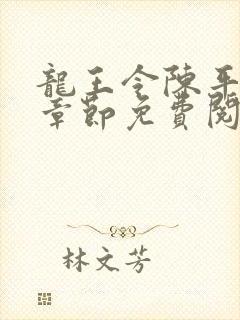 龍王令陳平
章節免費閱
林文芳